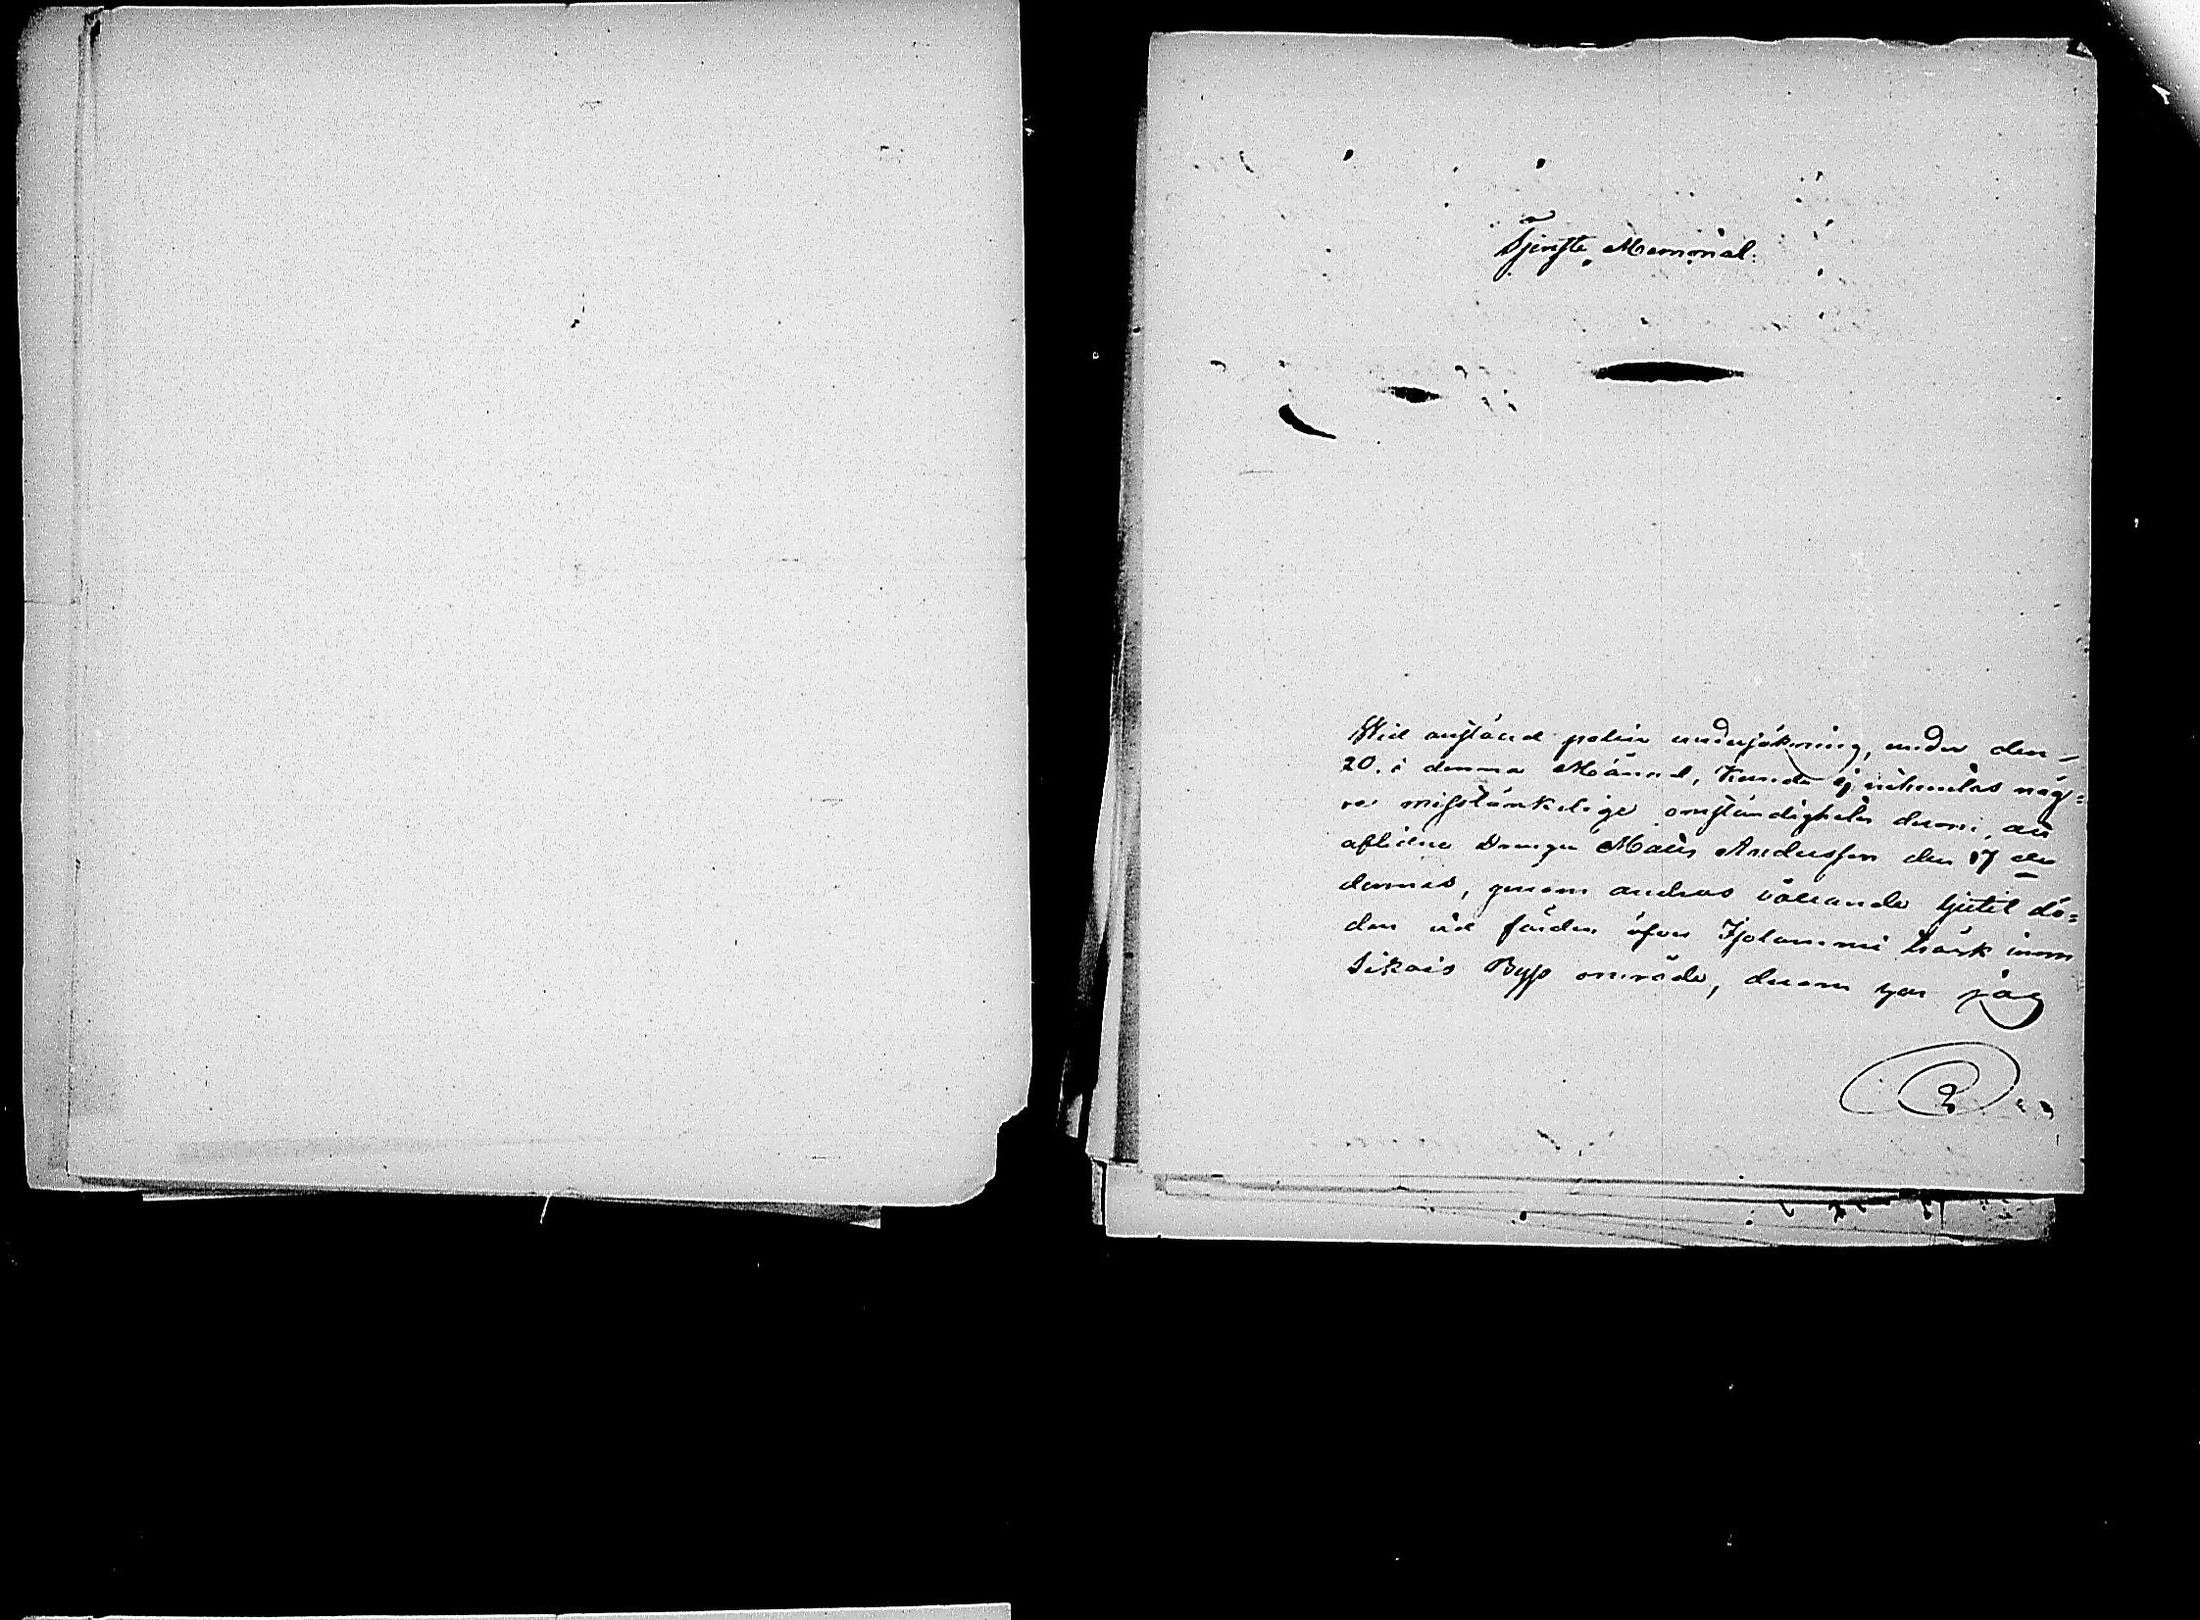 Tjenste Memorial.
Wid anstäld polis undersökning, under den
20. i denna Månad, kunde ej utrönas någ=
ra misstänkelige omständigheter derom, att
aflidne Drengen Matts Andersson den 17 de
dennes, genom andras vållande ljutit dö=
den vid färden öfver träsk inom
Sikais Byss område, derom gör jag